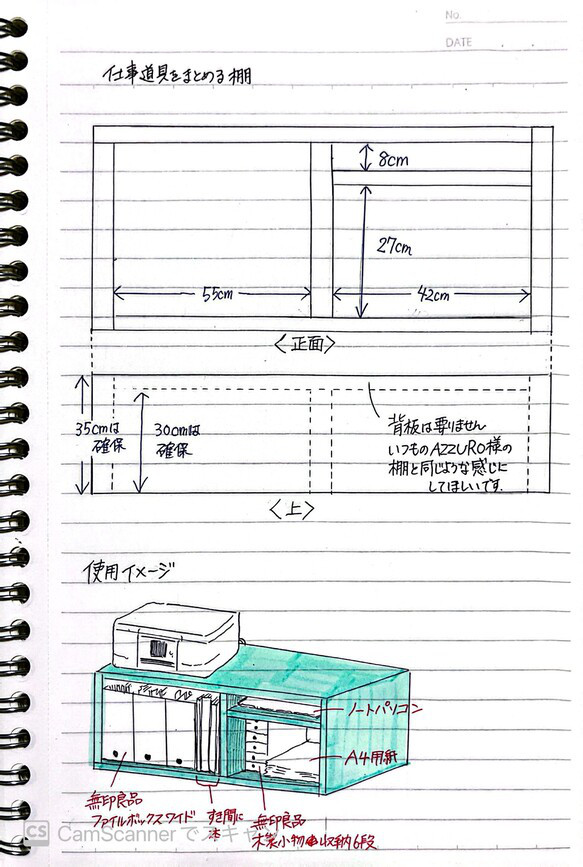 No.
DATE
仕事道具をまとめる棚
8cm
27cm
55cm
42cm
〈正面〉
35cmは
確保
30cmは
確保
背板は要りません
いつものAZZURO様の
棚と同じような感じに
してほしいです。
〈上〉
使用イメージ
ノートパソコン
A4用紙
無印良品
ファイルボックスワイド
すき間に
本
無印良品
木製小物収納6段
CS CamScannerでスキャ